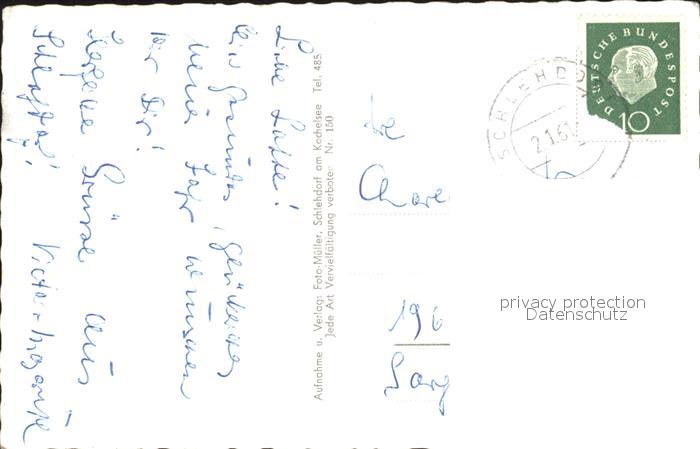 Liebe Lotte!
Ein gesundes, glückliches
neues Jahr wünschen
wir Dir!
Herzliche Grüsse aus
Schlehdorf!
Aufnahme u. Verlag: Foto-Müller, Schlehdorf am Kochelsee Tel. 485
Jede Art Vervielfältigung verboten Nr. 150
DEUTSCHE BUNDESPOST
10
SCHLEHD
2.1.61
196
privacy protection
Datenschutz